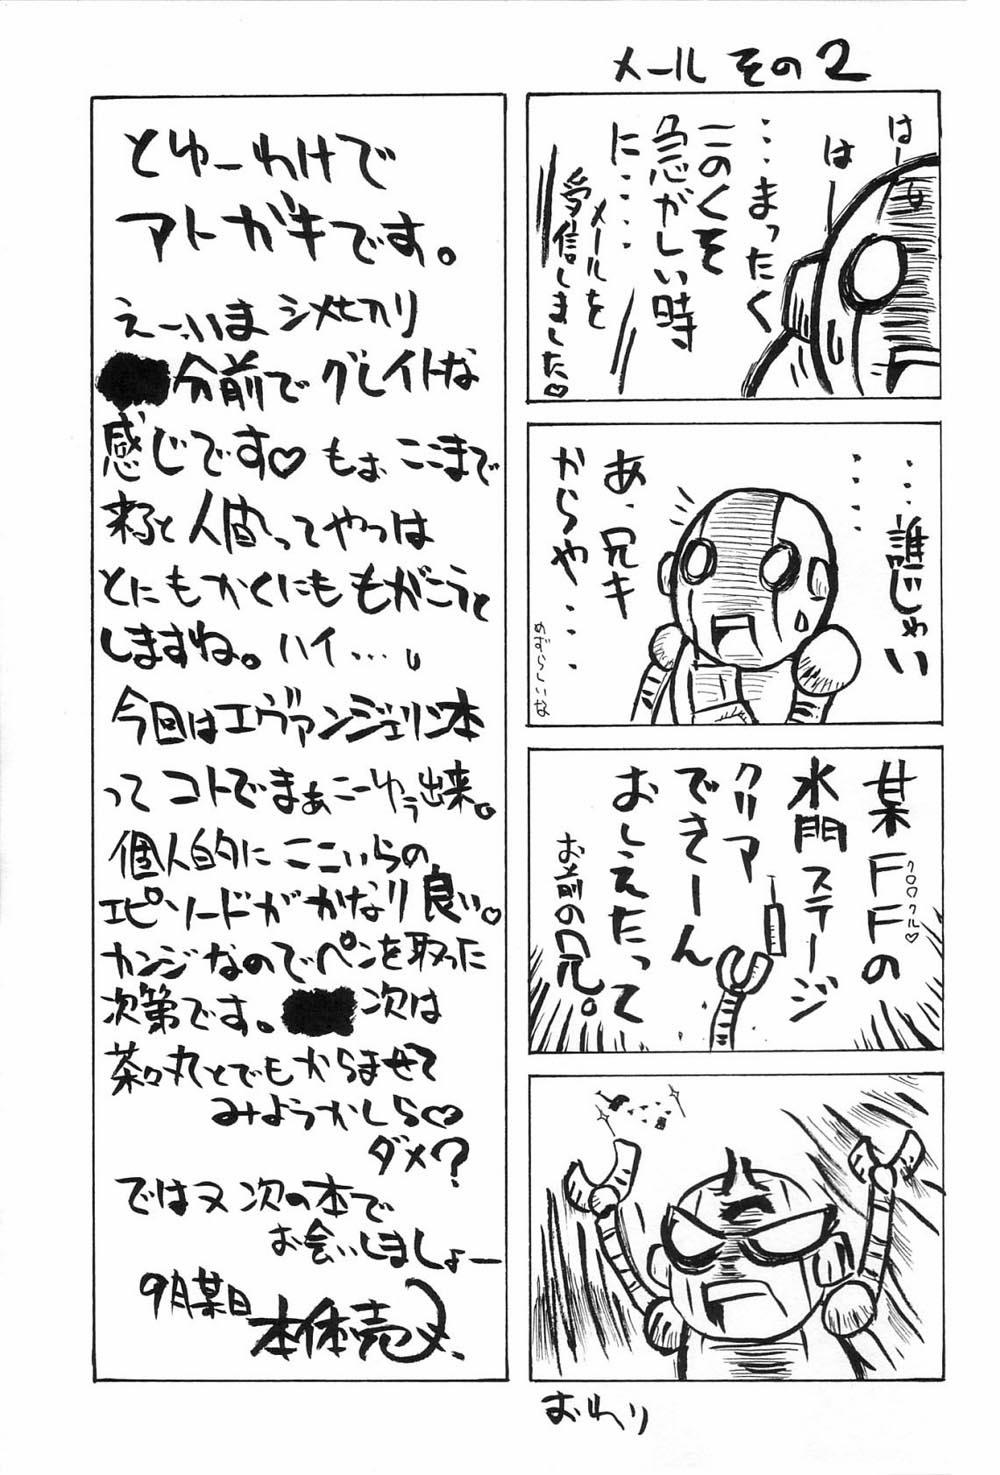 メール その2
はー
はー
…まったく
このくそ
急がしい時
に‥‥
メールを
受信しました♡
‥‥誰じゃい
‥‥
あ、兄キ
からや‥‥
めずらしいな
某FFの
クロロクル♡
水門ステージ
クリア
できーん
おしえたって
お前の兄。
おわり
とゆーわけで
アトガキです。
えーいま シメセカリ
分前で グレイトな
感じです♡ もぉ ここまで
来ると 人間ってやつは
とにもかくにも もがこうと
しますね。ハイ…。
今回はエヴァンジェリン本
って コトで まぁこーゆう出来。
個人的に ここいらの
エピソードが かなり 良い。
カンジなので ペンを取った
次第です。 次は
茶々丸とでも からませて
みようかしら♡
ダメ?
ではヌ 次の本で
お会いしましょー
9月某日
本体売